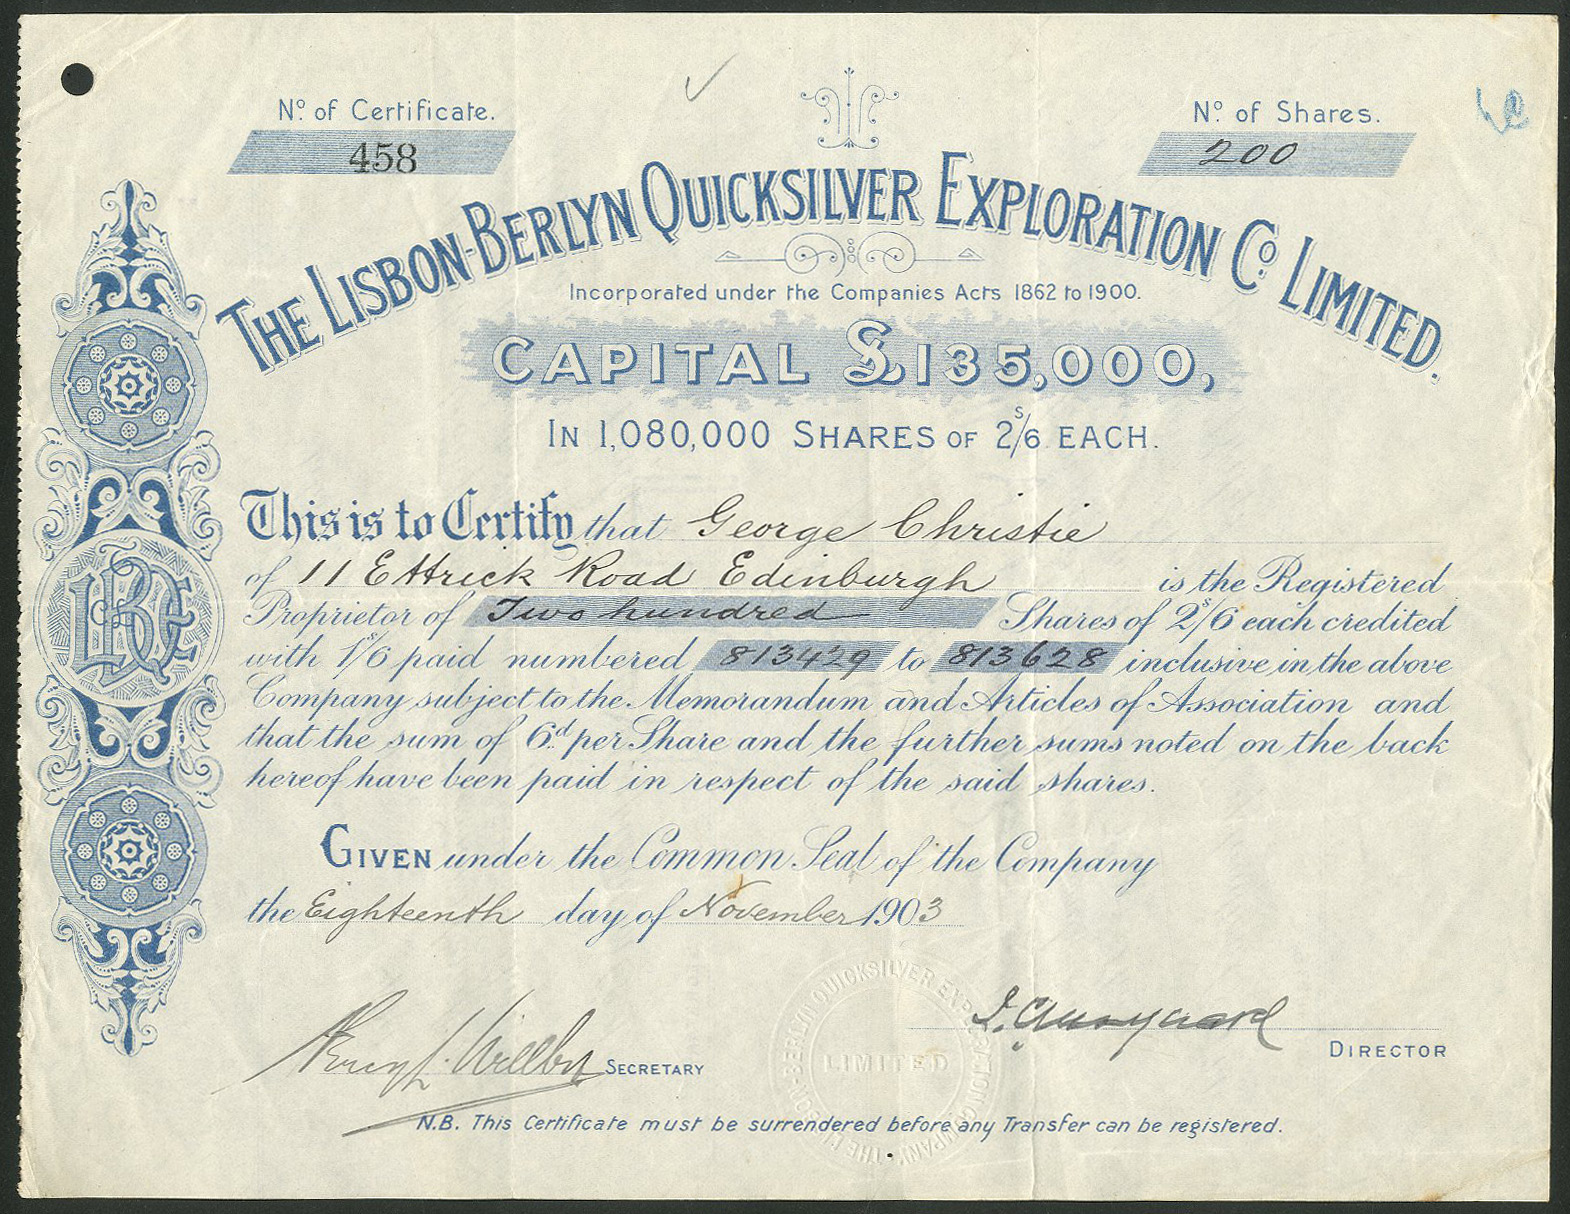 Nº of Certificate.
458
Nº of Shares.
200
THE LISBON-BERLYN QUICKSILVER EXPLORATION Cº LIMITED.
Incorporated under the Companies Acts 1862 to 1900.
CAPITAL £135,000,
IN 1,080,000 SHARES OF 2s/6 EACH.
This is to Certify that George Christie
of 11 Ettrick Road Edinburgh is the Registered
Proprietor of Two hundred Shares of 2s/6 each credited
with 1s/6 paid numbered 813429 to 813628 inclusive in the above
Company subject to the Memorandum and Articles of Association and
that the sum of 6d. per Share and the further sums noted on the back
hereof have been paid in respect of the said shares.
GIVEN under the Common Seal of the Company
the Eighteenth day of November 1903
SECRETARY
DIRECTOR
THE LISBON-BERLYN QUICKSILVER EXPLORATION COMPANY
LIMITED
N.B. This Certificate must be surrendered before any Transfer can be registered.